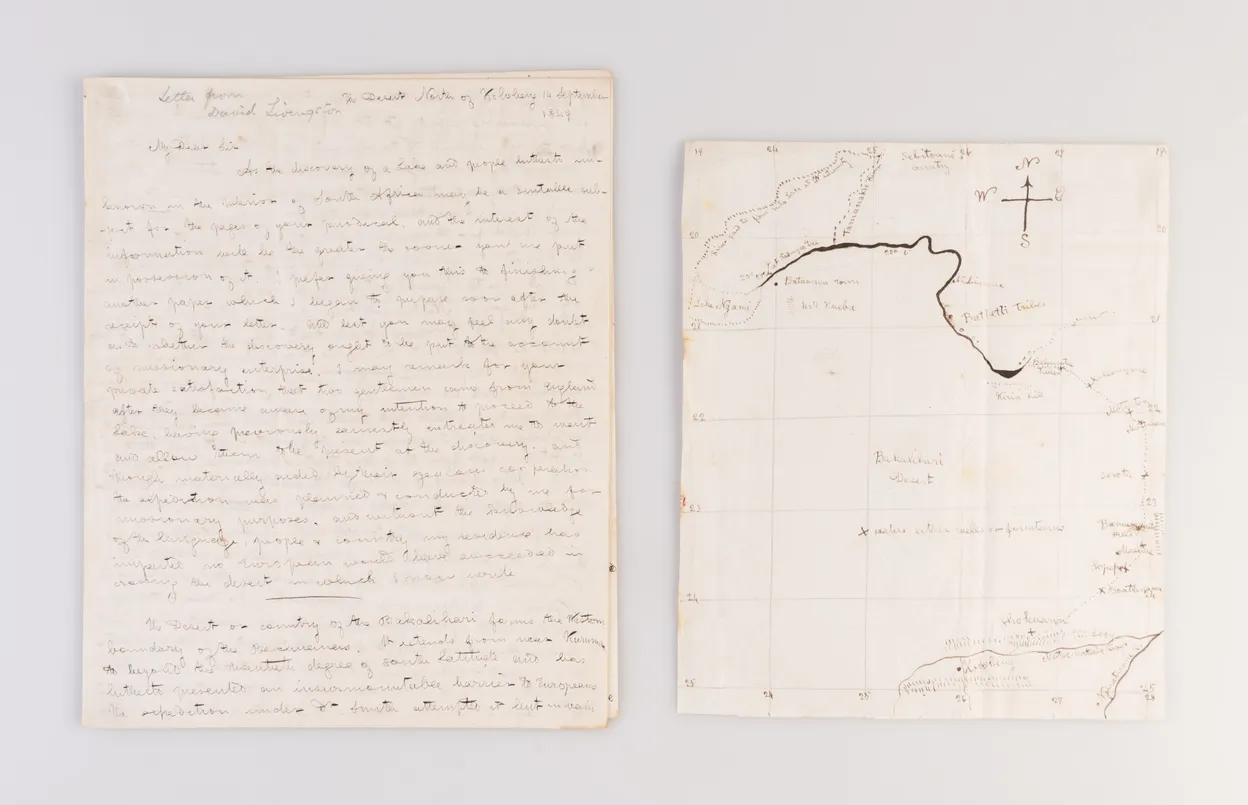 Letter from
David Livingston
The Desert North of Kolobeng 14 September
1849
My Dear Sir
As the discovery of a Lake and people hitherto un-
known in the interior of South Africa may be a suitable sub-
-ject for the pages of your periodical, and the interest of the
information will be the greater the sooner you are put
in possession of it I prefer giving you this to finishing
another paper which I began to prepare soon after the
receipt of your letter. And lest you may feel any doubt
as to whether the discovery ought to be put to the account
of missionary enterprise, I may remark for your
private satisfaction, that two gentlemen came from
after they became aware of my intention to proceed to the
Lake, having previously earnestly entreated me to wait
and allow them to be present at the discovery. and
though materially aided by their zealous cooperation
the expedition was planned & conducted by me for
missionary purposes. and without the knowledge
of the language, people & country my residence has
imparted no European would have succeeded in
crossing the desert in which I now write
The Desert or country of the Bakalihari forms the Western
boundary of the Bechuanas. It extends from near Kuruman
to beyond the twentieth degree of South Latitude and has
hitherto presented an insurmountable barrier to Europeans
The expedition under Dr Smith attempted it but in vain
19
24
25
26
27
19
Sebitoani
country
N
W
E
S
20
20
Tamanakle
Lake Ngami
Bataoana town
hill Kuebe
Batletli tribes
21
21
Kiria hill
22
22
Bakalihari
Desert
23
23
x waters either wells or fountains
24
24
Kolobeng
25
24
25
26
27
25
28